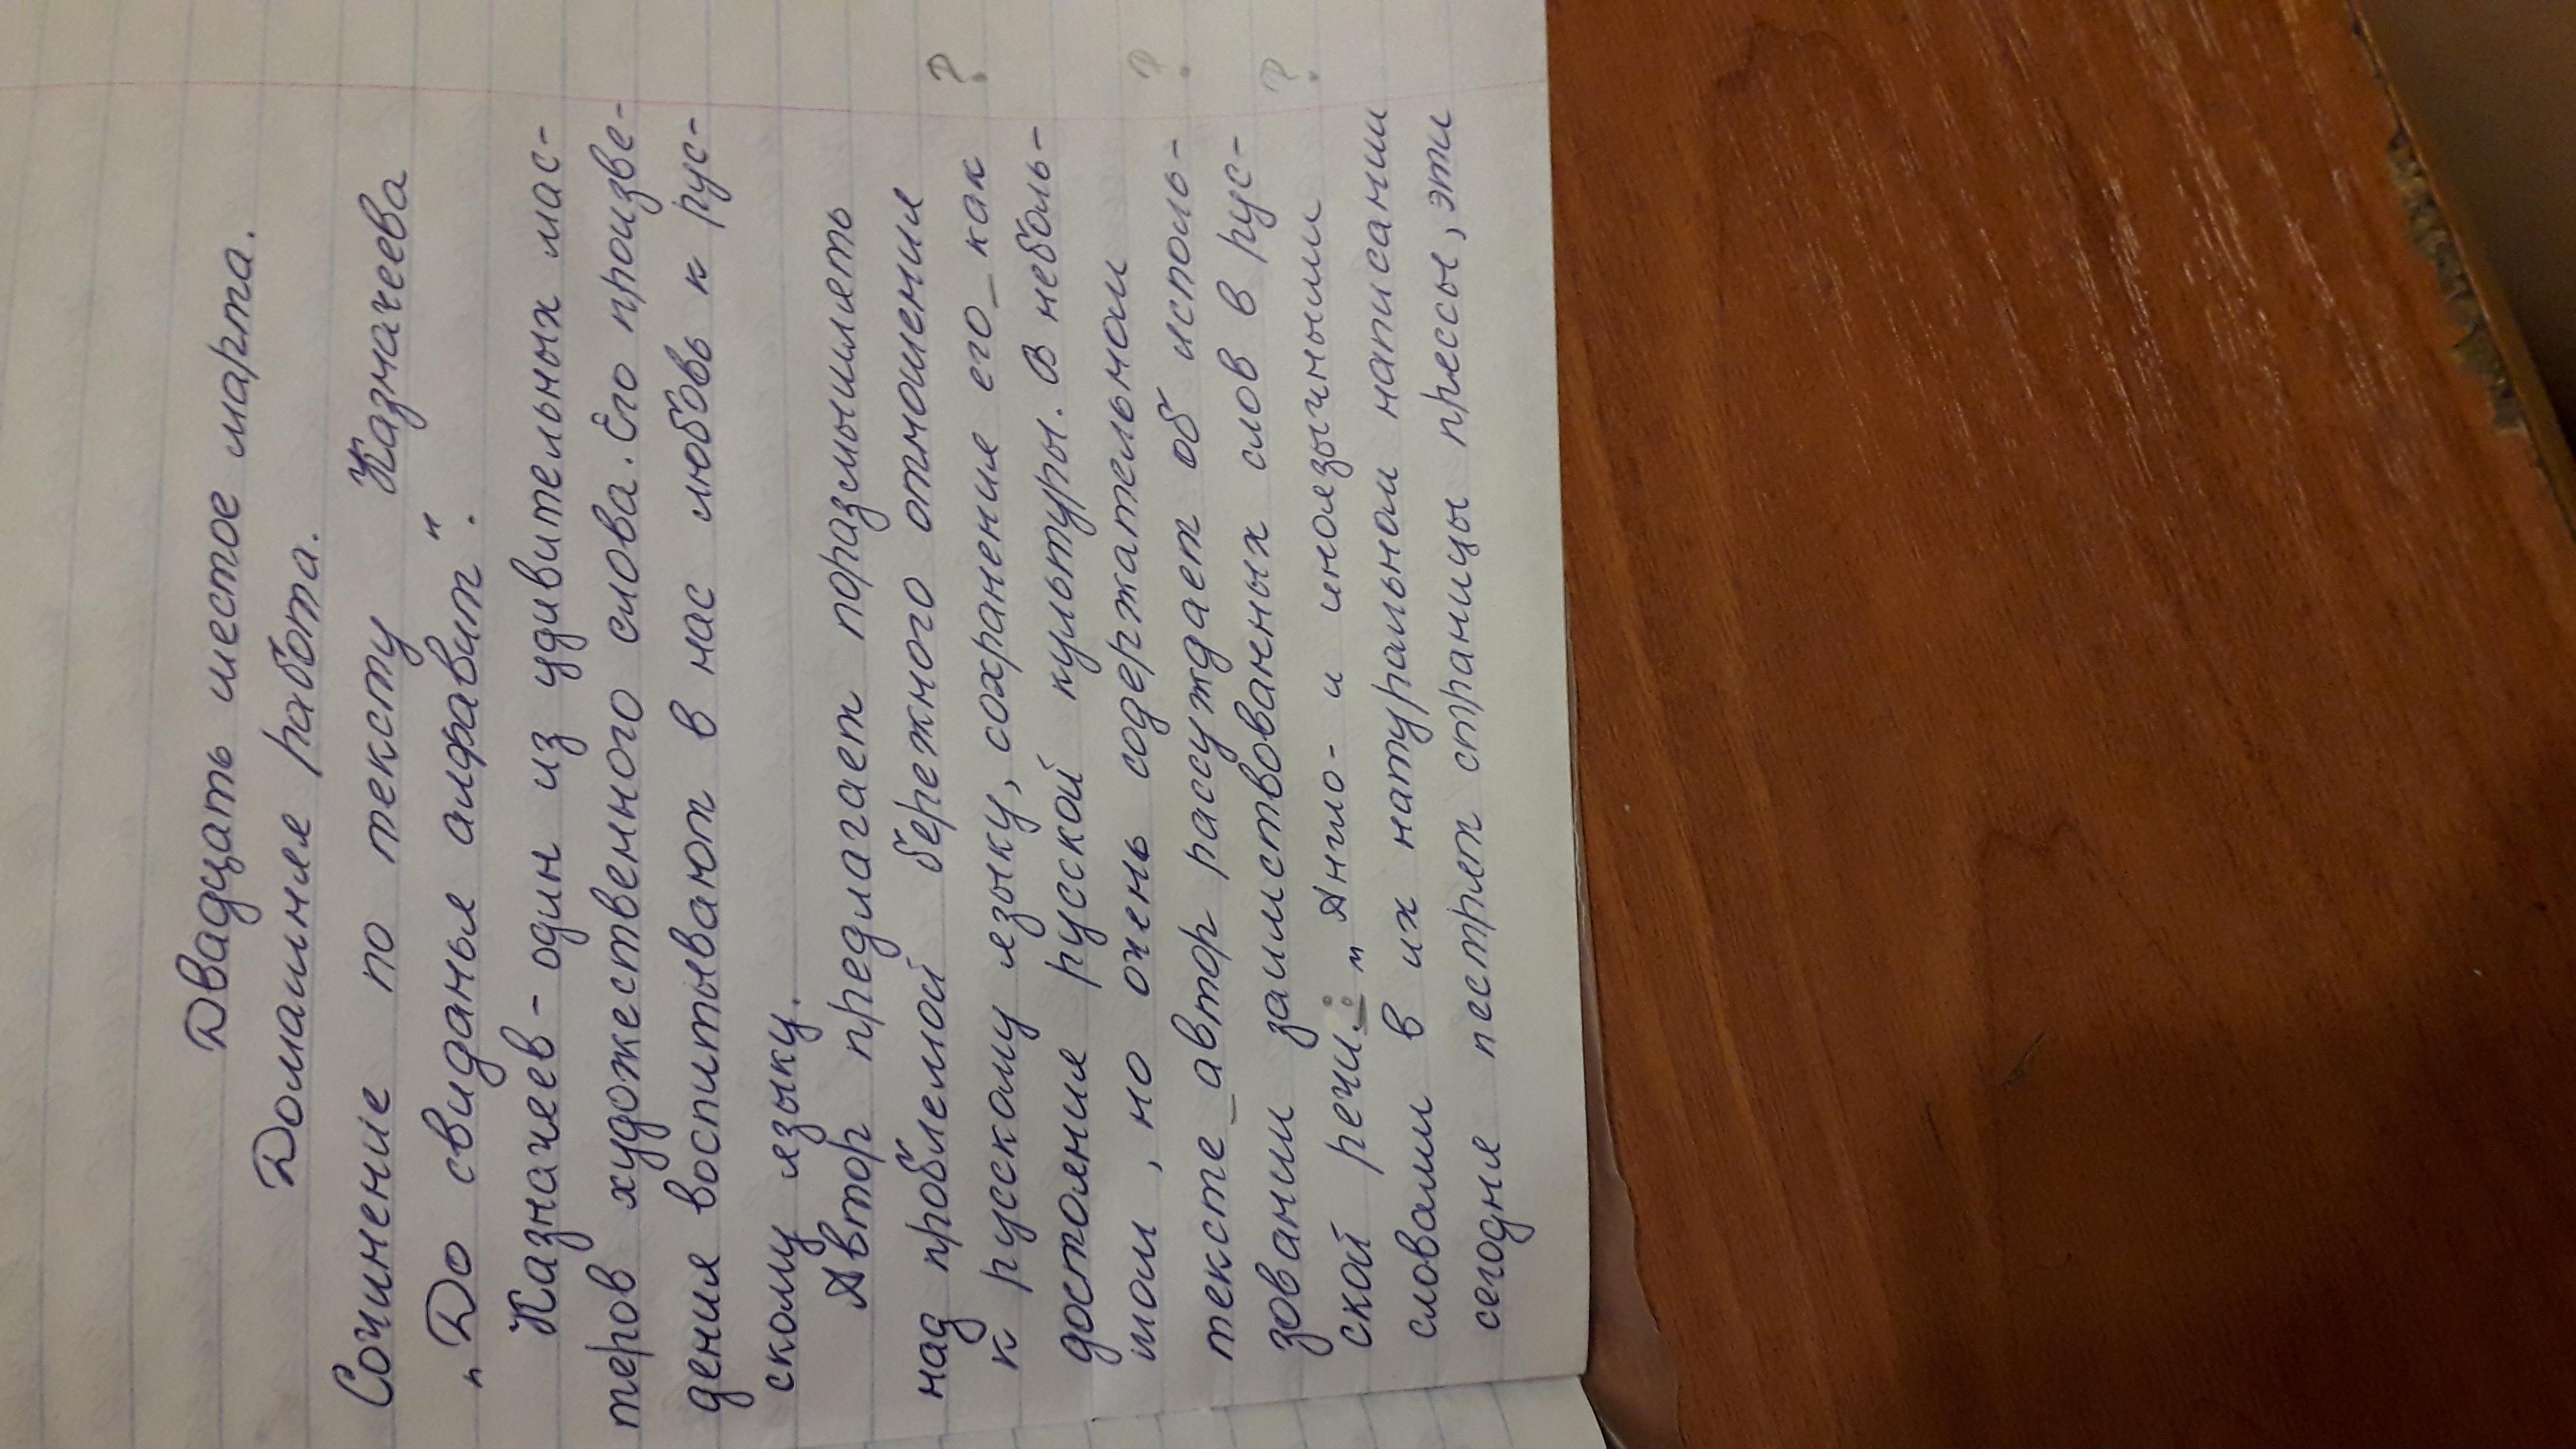 Двадцать шестое марта.
Домашняя работа.
Сочинение по тексту Казначеева
„До свиданья алфавит".
Казначеев - один из удивительных мас-
теров художественного слова. Его произве-
дения воспитывают в нас любовь к рус-
скому языку.
Автор предлагает поразмышлять
над проблемой бережного отношения
к русскому языку, сохранения его_как ?
достояния русской культуры. В неболь-
шом, но очень содержательном
тексте_автор рассуждает об исполь- ?
зовании заимствованных слов в рус-
ской речи.: „Англо- и иноязычными ?
словами в их натуральном написании
сегодня пестрят страницы прессы, эти